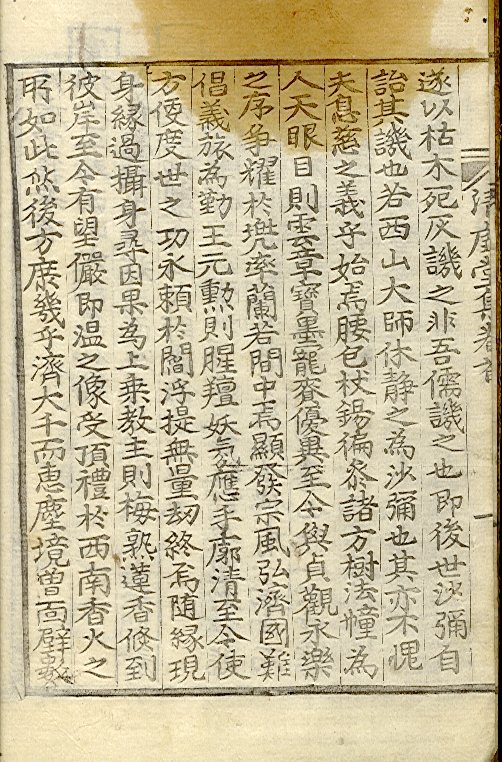 清虛堂集卷首　一
遂以枯木死灰譏之非吾儒譏之也即後世沙彌自
詒其譏也若西山大師休静之為沙彌也其亦不愧
夫息慈之義乎始焉腰包杖錫徧叅諸方樹法幢為
人天眼目則雲章寶墨寵賚優異至今與貞觀永樂
之序争耀於兜率蘭若間中焉顯發宗風弘濟國難
倡義旅為勤王元勳則腥羶妖氛應手廓清至今使
方便度世之功永頼於閻浮提無量劫終焉随緣現
身緣過攝身尋因果為上乗教主則梅熟蓮香倏到
彼岸至今有望儼即温之像受頂禮於西南香火之
所如此然後方庶幾乎濟大千而恵塵境曾面壁